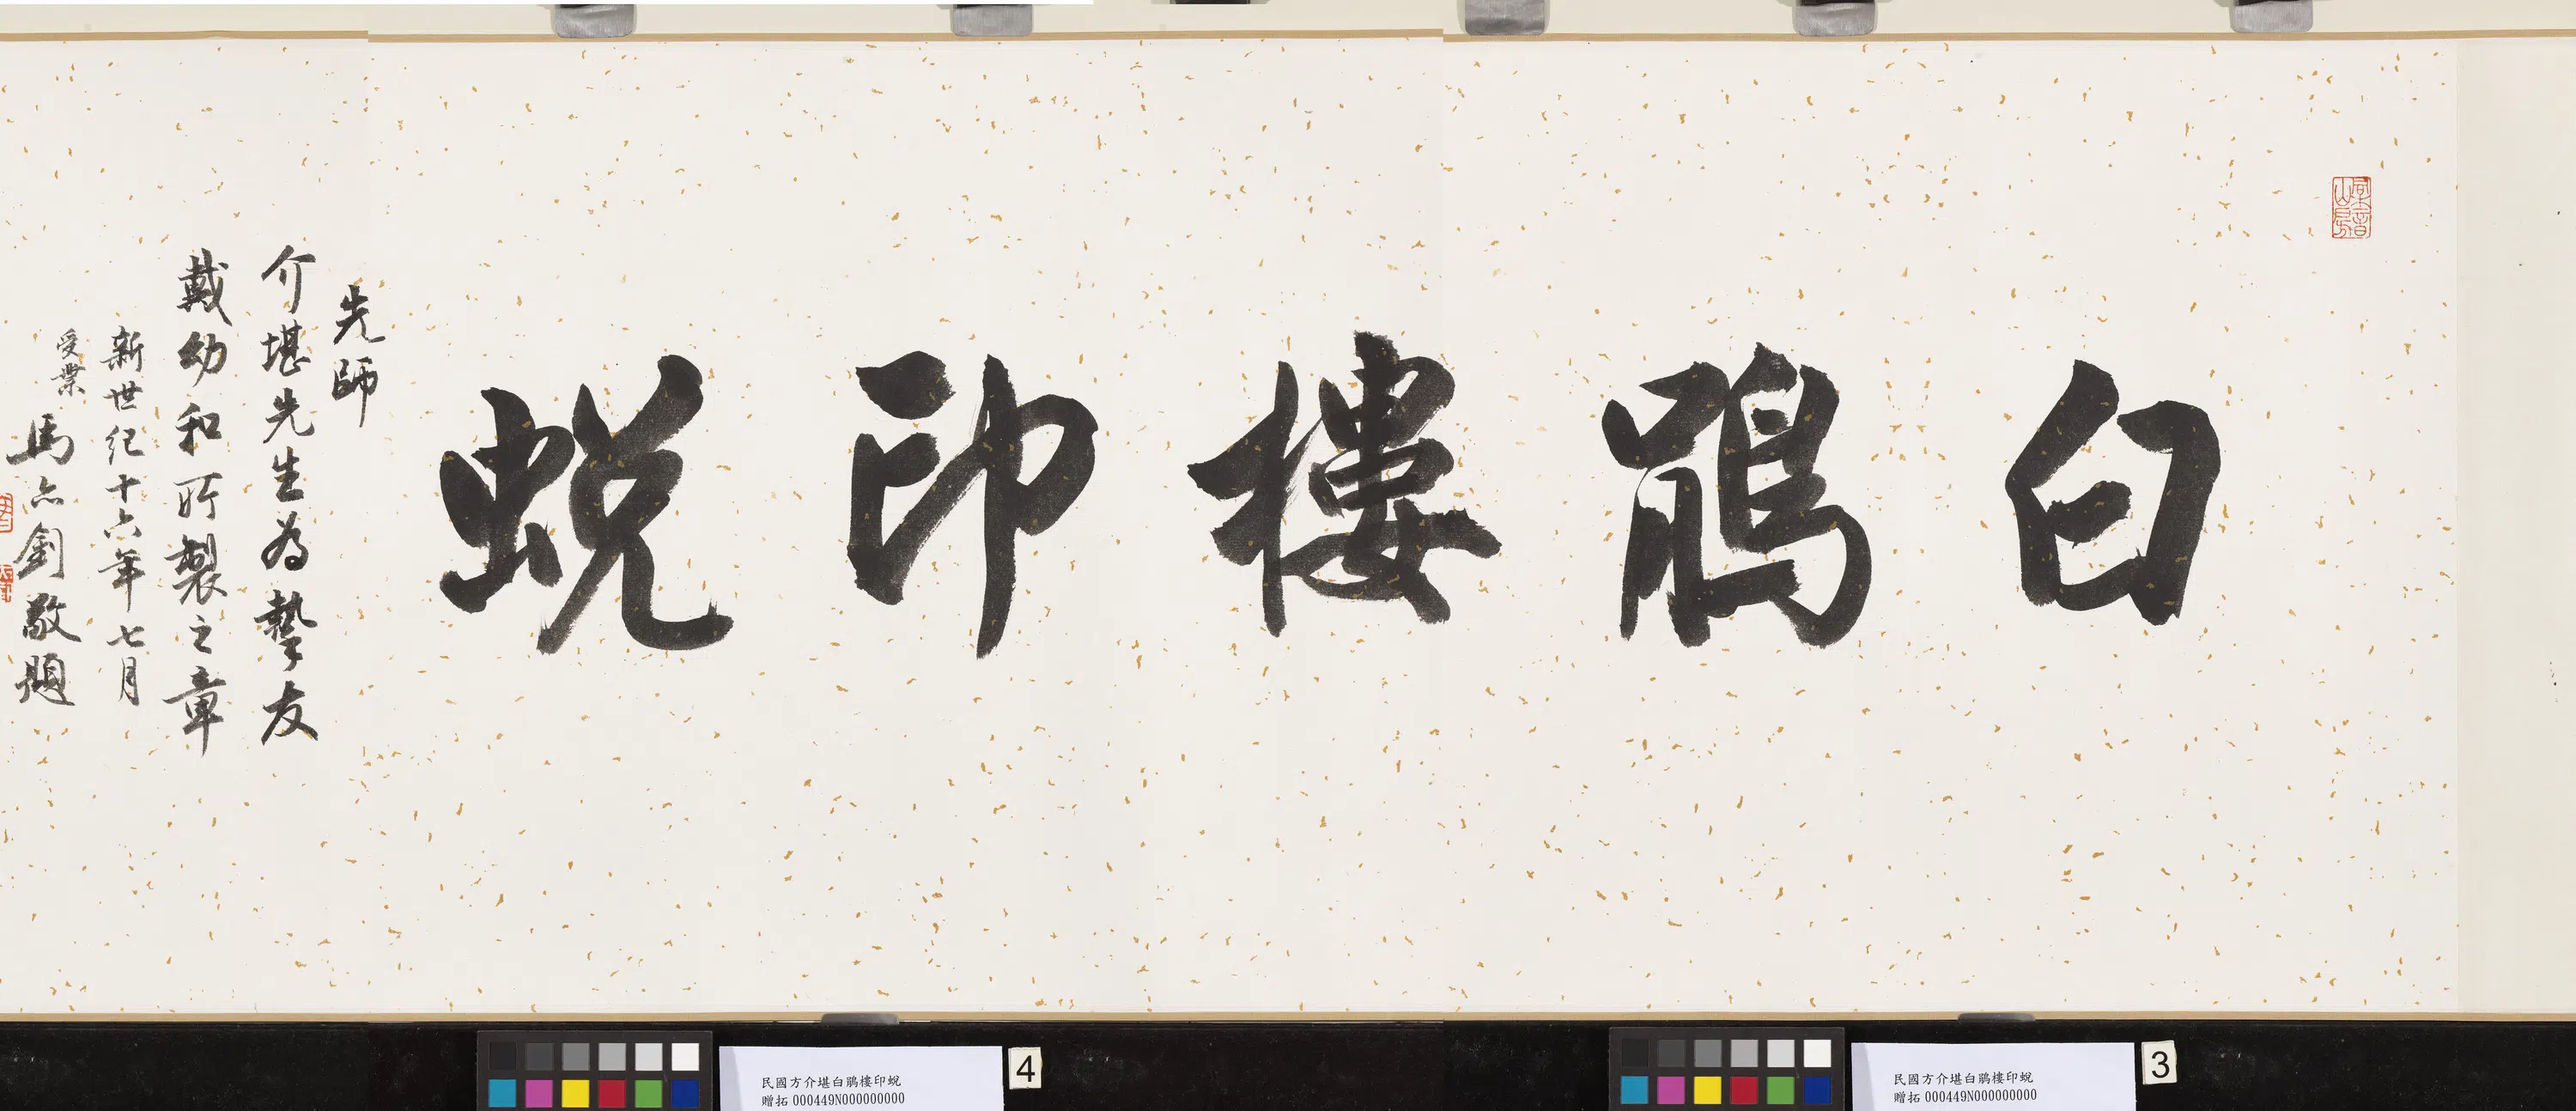 白鷳樓印蛻
先師
介堪先生為摯友
戴幼和所製之章
新世紀十六年七月
受業
馬亦釗敬題
民國方介堪白鷳樓印蛻
贈拓 000449N000000000
3
民國方介堪白鷳樓印蛻
贈拓 000449N000000000
4